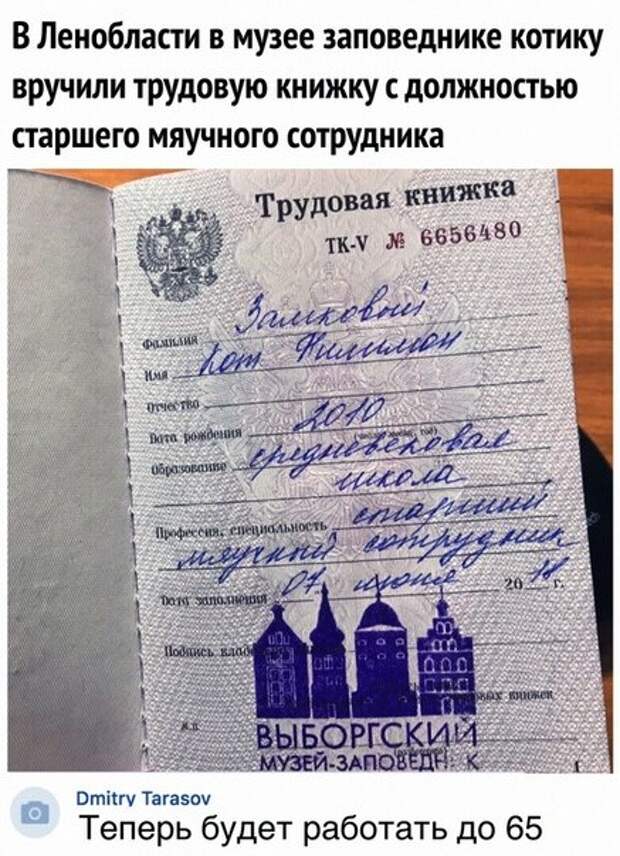 В Ленобласти в музее заповеднике котику
вручили трудовую книжку с должностью
старшего мяучного сотрудника
Трудовая книжка
ТК-V № 6656480
Фамилия Замковый
Имя Кот Филимон
Отчество
Дата рождения 2010
Образование средневековая
школа
Профессия, специальность старший
мяучный сотрудник
Дата заполнения 07 июня 20 18 г.
Подпись
книжек
М.П.
ВЫБОРГСКИЙ
МУЗЕЙ-ЗАПОВЕДН К
Dmitry Tarasov
Теперь будет работать до 65